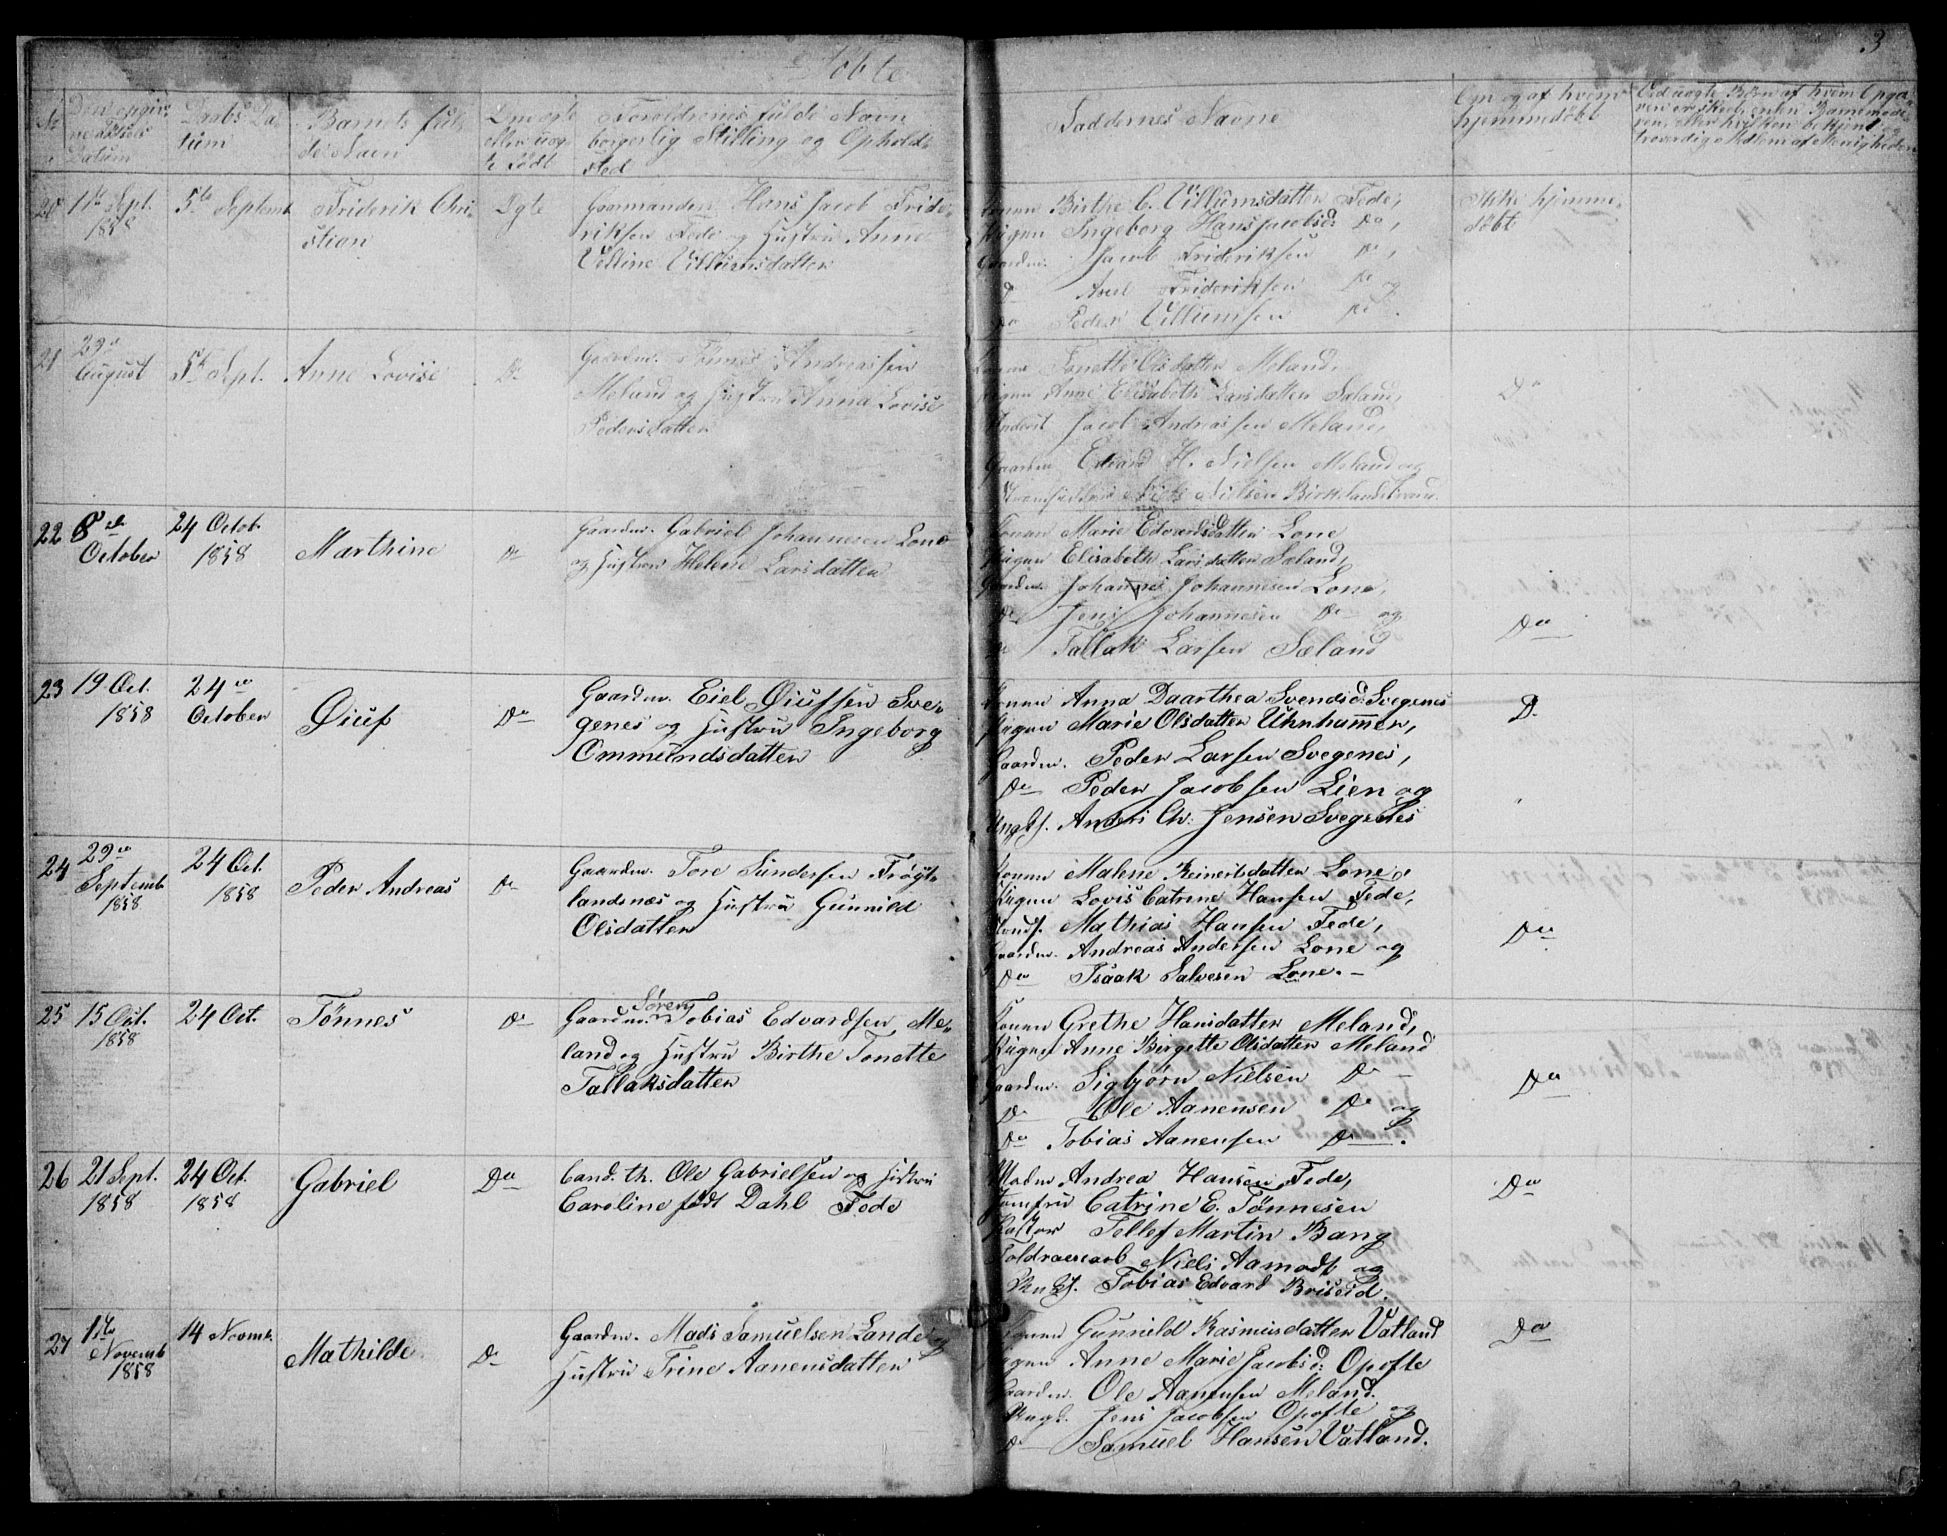 3
Døbte
No
Den opgivne Fødsels Datum
Daabs Datum
Barnets fulde Navn
Om ægte eller uægte Født
Forældrenes fulde Navn borgerlig Stilling og Opholdssted
Faddernes Navne
Om og af hvem hjemmedøbt
Ved uægte Børn af hvem Opgaven er skeet, enten Barnemoderen, eller hvilken bekjendt troværdig Medlem af Menigheden
20
1te Sept.
1858
5te Septemb
Friderik Chri-
stian
Ægte
Gaarmanden Hans Jacob Fride-
riksen Fede og Hustru Anne
Velline Villumsdatter
Konen Birthe C. Villumsdatter Fede,
Pigen Ingeborg Hansjacobsd: Do,
Gaardm. Jacob Frideriksen Do,
Do Axel Frideriksen Do og
Do Peder Villumsen Do.
Ikke hjemme-
døbt
21
29de
August
5te Sept.
Anne Lovise
Do
Gaardm. Tønnes Andreassen
Meland og Hustru Anna Lovise
Pedersdatter
Konen Tonette Olsdatter Meland,
Pigen Anne Elisabeth Larsdatter Sæland,
Jacob Andreassen Meland,
Gaardm Edvard H. Nielsen Meland og
Niels Nielsen
Do
22
8de
October
24 Octob.
1858
Marthine
Do
Gaardm. Gabriel Johannesen Lone
og Hustru Helene Larsdatter
Konen Marie Edvardsdatter Lone,
Pigen Elisabeth Larsdatter Sæland,
Gaardm. Johannes Johannesen Lone,
Do Jens Johannesen Do og
Do Tallak Larsen Sæland
Do
23
19 Oct.
1858
24de
October
Øiuf
Do
Gaardm. Eiel Øiufsen Sve-
genes og Hustru Ingeborg
Ommundsdatter
Konen Anna Daarthea Svendsd: Svegenes
Pigen Marie Olsdatter Uhnhammer,
Gaardm. Peder Larsen Svegenes,
Do Peder Jacobsen Lien og
Ungk. Anders Chr: Jensen Svegenes
Do
24
29de
Septemb
1858
24 Oct.
1858
Peder Andreas
Do
Gaardm. Tore Sundersen Frøyt-
landsnæs og Hustru Gunnild
Olsdatter
Konen Malene Reinertsdatter Lone,
Pigen Lovis Catrine Hansen Fede,
Mathias Hansen Fede,
Gaardm. Andreas Andersen Lone og
Do Isaak Salvesen Lone.
Do
25
15 Oct.
1858
24 Oct.
Tønnes
Do
Søren
Gaardm. Tobias Edvardsen Me-
land og Hustru Birthe Tonette
Tallaksdatter
Konen Grethe Hansdatter Meland,
Pigen Anne Birgette Olsdatter Meland
Gaardm. Sigbjørn Nielsen Do
Do Ole Aanensen Do og
Do Tobias Aanensen Do.
Do
26
21 Sept.
1858
24 Oct.
1858
Gabriel
Do
Cand. th. Ole Gabrielsen og Hustru
Caroline født Dahl Fede
Madm Andrea Hansen Fede,
Jomfru Catrine E. Tønnesen
Pastor Tellef Martin Bang
Niels Aamodt og
Ungk. Tobias Edvard Briseid.
Do
27
1ste
Novemb
1858
14 Novmb.
Mathilde
Do
Gaardm. Mads Samuelsen Lande og
Hustru Trine Aanensdatter
Konen Gunnild Rasmusdatter Vatland
Pigen Anne Marie Jacobsd: Opofte
Gaardm. Ole Aanensen Meland.
Ungk. Jens Jacobsen Opofte og
Do Samuel Hansen Vatland.
Do